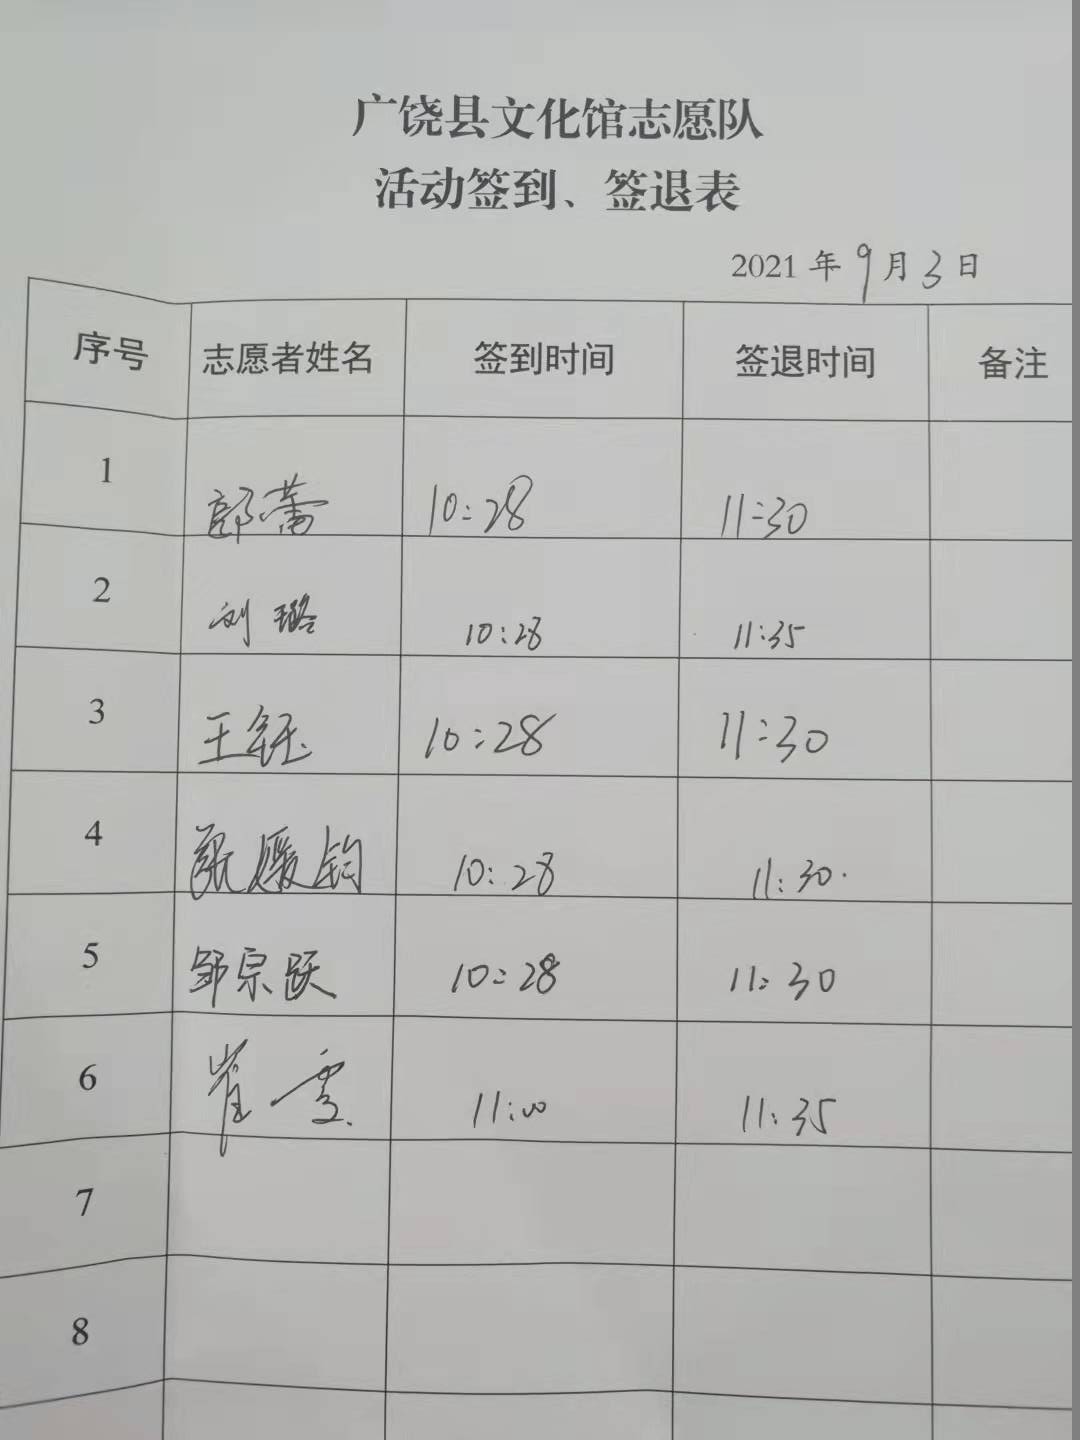 广饶县文化馆志愿队
活动签到、签退表
2021年9月3日
序号 志愿者姓名 签到时间 签退时间 备注
1 10:28 11:30
2 刘璐 10:28 11:35
3 王钰 10:28 11:30
4 张媛钧 10:28 11:30.
5 邹宗跃 10:28 11:30
6 崔雪 11:00 11:35
7
8